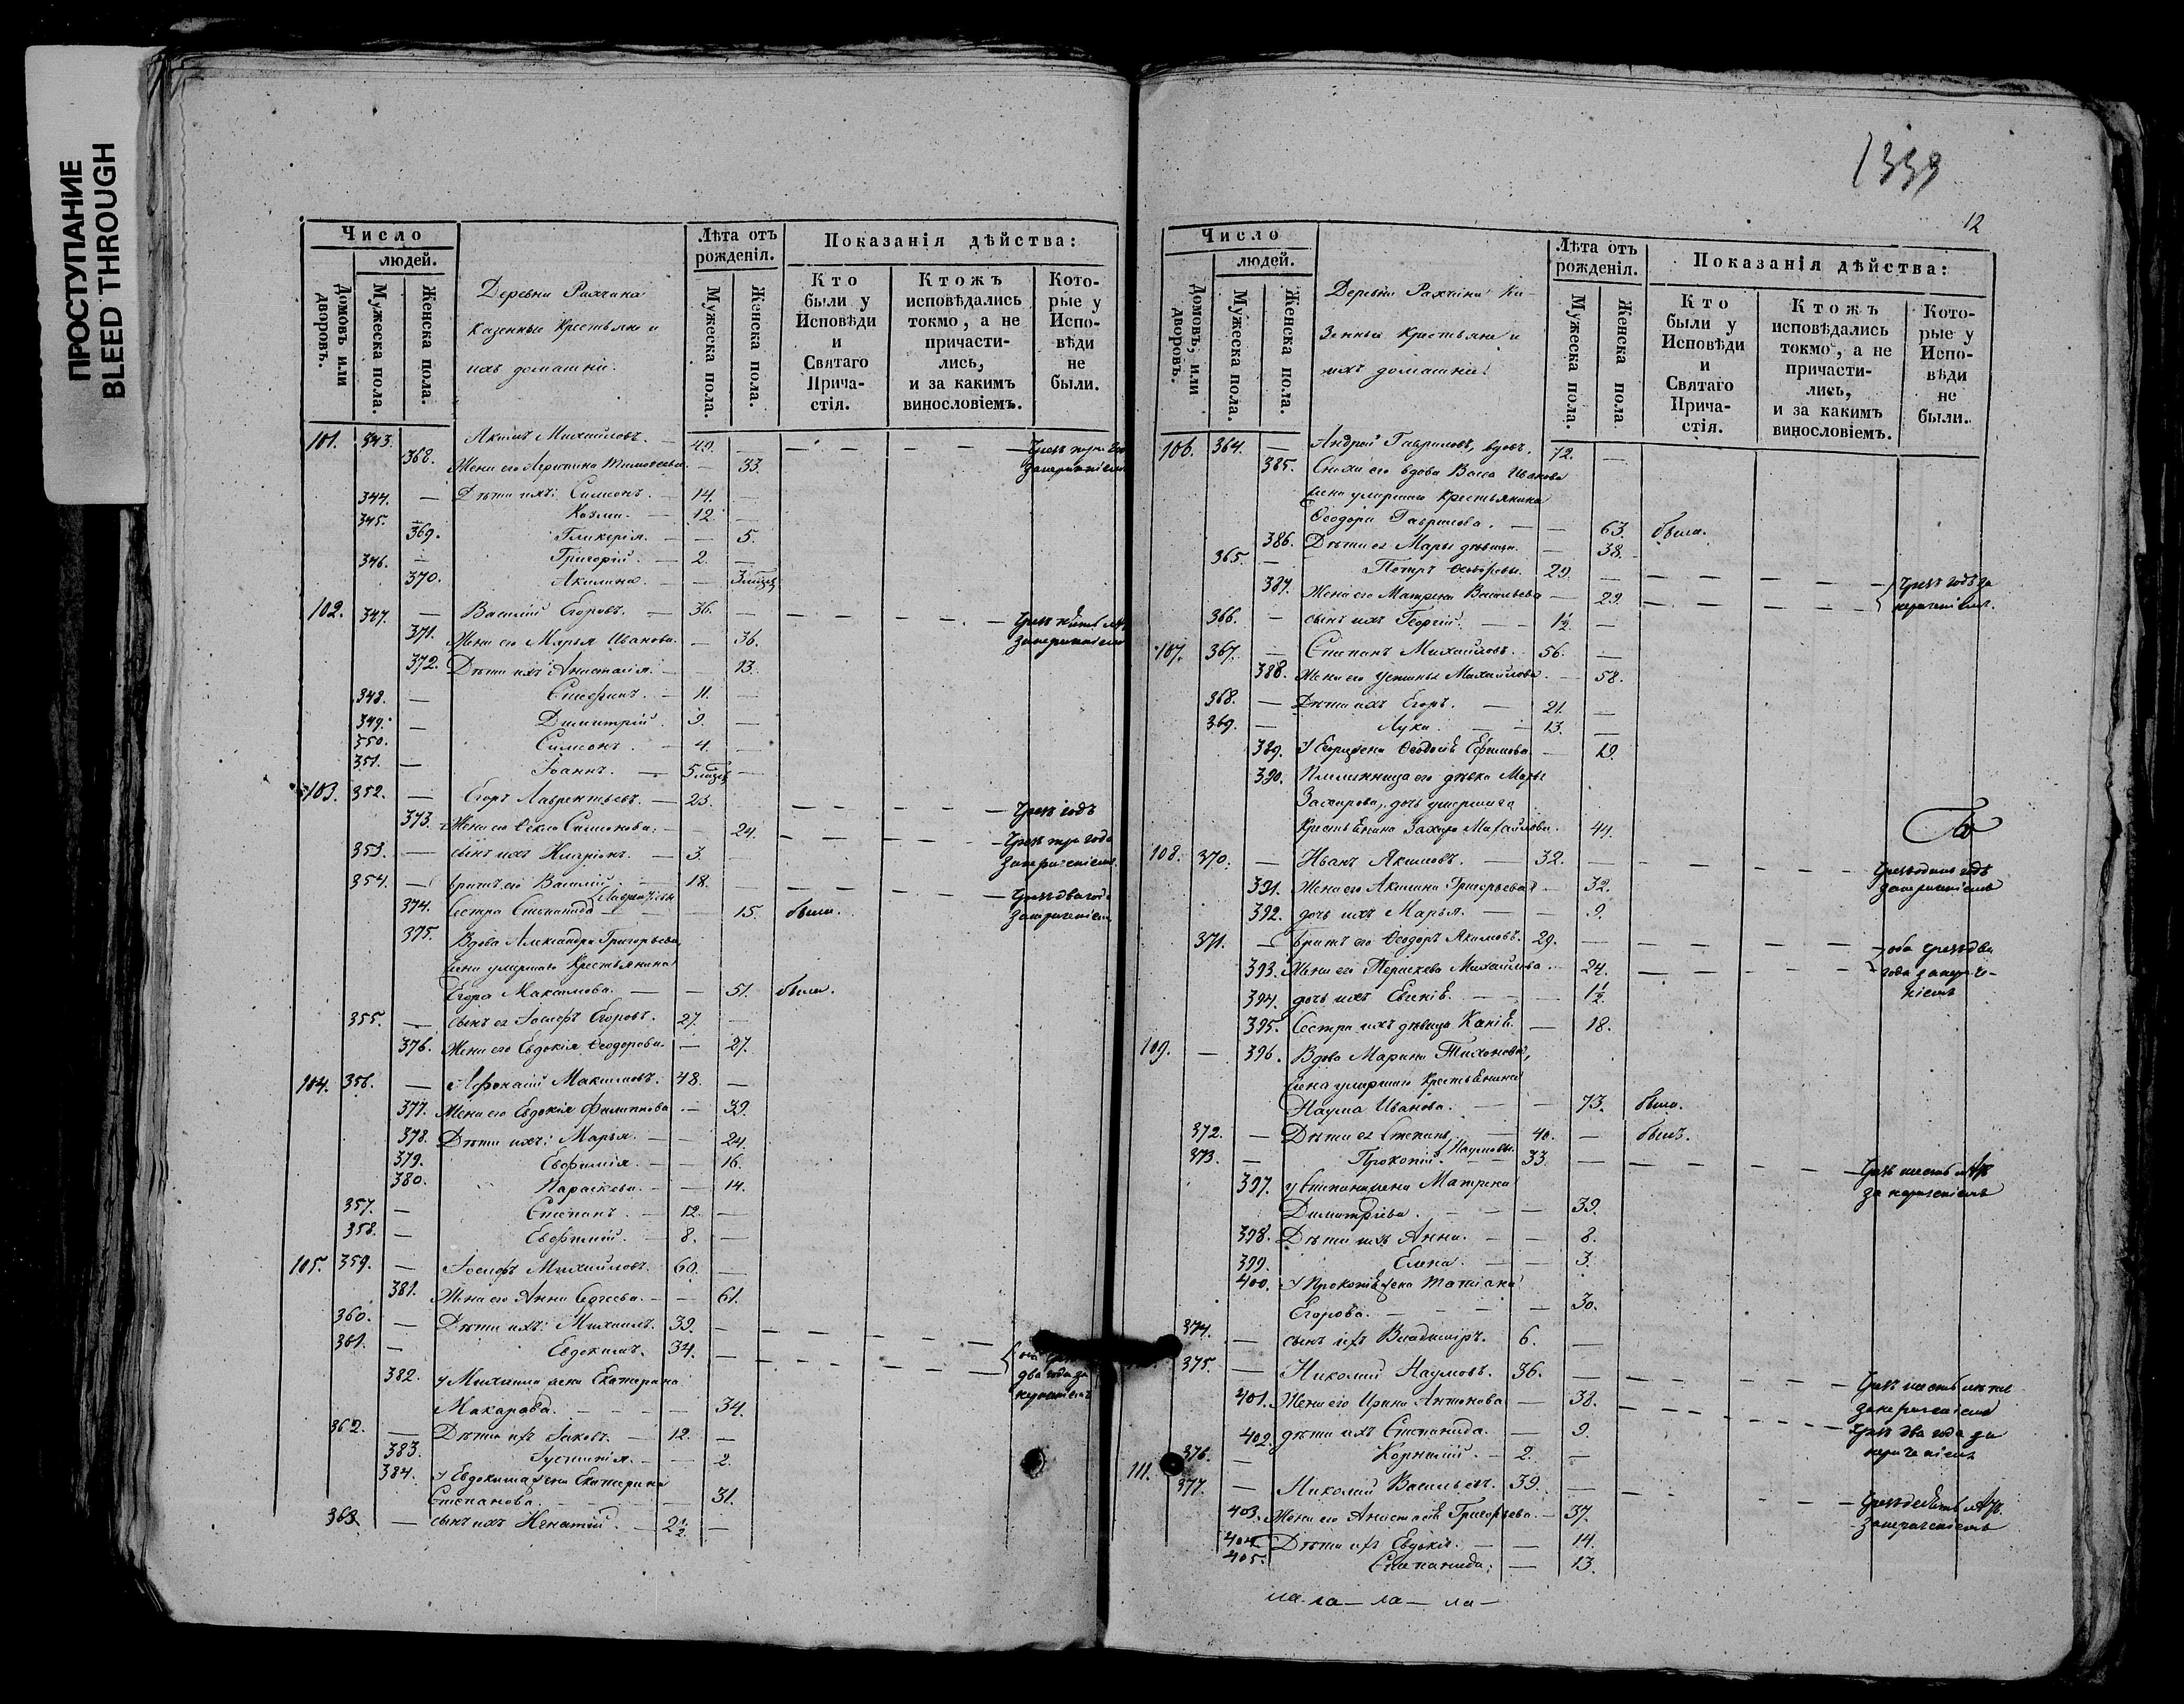 ПРОСТУПАНИЕ
BLEED THROUGH
Число
людей.
Домовъ или дворовъ.
Мужеска пола.
Женска пола.
Деревни
Казенные крестьяне и
ихъ домашни.
Лѣта отъ рожденія.
Мужеска пола.
Женска пола.
Показанія дѣйства:
Кто были у Исповѣди и Святаго Прича-стія.
Ктожъ исповѣдались токмо, а не причасти-лись, и за какимъ винословіемъ.
Кото-рые у Испо-вѣди не были.
101. 343. — Акимъ Михайловъ. — 49. —
368. Жена его Агрипина Тимофеева. — 33.
344. — Дѣти ихъ: Симеонъ. — 14. —
345. — Козма. — 12. —
369. Гликерія. — — 5.
346. — Григорій. — 2. —
370. Акилина. — — 3
102. 347. — Василій Егоровъ. — 36. —
371. Жена его Марья Иванова. — 36.
372. Дѣти ихъ: Анастасія. — — 13.
348. — Стефанъ. — 11. —
349. — Димитрій. — 9. —
350. Симеонъ. — 4. —
351. — Іоаннъ. — 5 —
103. 352. — Егоръ Лаврентьевъ. — 23.
Чрезъ годъ
373. Жена его Ѳекла Симонова. — 24.
Чрезъ три года
353. — сынъ ихъ Иларіонъ. — 3. —
354. — братъ его Василій — 18. —
374. Сестра Степанида — — 15. была.
375. Вдова Александра Григорьева,
жена умершаго крестьянина
Егора Максимова. — — 51. была.
355. — сынъ ея Іосифъ Егоровъ. 27. —
376. Жена его Евдокія Ѳеодорова. — 27.
104. 356. — Аѳонасій Максимовъ. 48. —
377. Жена его Евдокія Филиппова — 39.
378. Дѣти ихъ: Марья. — — 24.
379. Евфимія. — — 16.
380. Параскева. — — 14.
357. — Степанъ. — 12. —
358. — Евфимій. — 8. —
105. 359. — Іосифъ Михайловъ. 60. —
381. Жена его Анна Сергеева. — — 61.
360. — Дѣти ихъ: Михаилъ. 39. —
361. — Евдокимъ. 34. —
два года за
382. у Михаила жена Екатерина
Макарова. — — — 34.
362. — Дѣти ихъ Іаковъ. — 12. —
383. Іустинія. — — 2.
384. У Евдокима жена Екатерина
Степанова. — — — 31.
363. — сынъ ихъ Игнатій. — 2½ —
1339
12
Число
людей.
Домовъ, или дворовъ.
Мужеска пола.
Женска пола.
Деревни Ка-
зенные крестьяне и
ихъ домашни.
Лѣта отъ рожденія.
Мужеска пола.
Женска пола
Показанія дѣйства:
Кто были у Исповѣди и Святаго Прича-стія.
Ктожъ исповѣдались токмо, а не причасти-лись, и за какимъ винословіемъ.
Кото-рые у Испо-вѣди не были.
106. 364. — Андрей Гавриловъ, вдовъ. 72. —
385. Сноха его вдова Васса Иванова
жена умершаго крестьянина
Ѳеодора Гаврилова. — — 63. была.
386. Дѣти ея Марья дѣвица. — 38.
365. — Петръ Ѳеодоровы. 29. —
Чрезъ годъ за
387. Жена его Матрена Васильева — 29.
366. — сынъ ихъ Георгій. — 1½ —
107. 367. — Степанъ Михайловъ. 56. —
388. Жена его Устинья Михайлова. — 58.
368. — Дѣти ихъ Егоръ. — 21. —
369. — Лука. — 13. —
389. У Егора жена Ѳеодосія Ефимова. — 19.
390. Племянница его дѣвка Марья
Захарова, дочь умершаго
крестьянина Захара Михайлова. 44.
108. 370. — Иванъ Якимовъ. — 32. —
391. Жена его Акилина Григорьева. — 32.
392. дочь ихъ Марья. — — 9.
371. — братъ его Ѳеодоръ Якимовъ. 29. —
оба чрезъ два
года
393. Жена его Параскева Михайлова. — 24.
394. дочь ихъ Евгенія. — — 1½
395. Сестра ихъ дѣвица Ксенія. — 18.
109. — 396. Вдова Марина Тихонова,
жена умершаго крестьянина
Наума Иванова. — — 73. была.
372. — Дѣти ея Степанъ, — 40. — былъ.
373. — Прокопій Наумовы. — 33. —
397. у Степана жена Матрена
Димитріева. — — — 39.
398. Дѣти ихъ Анна. — — 8.
399. Елена. — — 3.
400. У Прокопія жена Татіана
Егорова. — — — 30.
374. — сынъ ихъ Владиміръ. 6. —
375. — Николай Наумовъ. 36. —
401. Жена его Ирина Антонова — 38.
Чрезъ два года за
402. дѣти ихъ Степанида. — 9.
376. — Корнилій. — 2. —
111. 377. — Николай Васильевъ. 39. —
403. Жена его Анастасія Григорьева. — 37.
404. Дѣти ихъ Евдокія. — — 14.
405. Степанида. — 13.